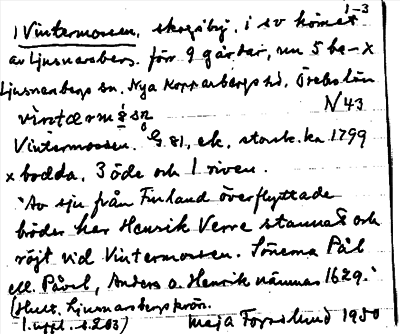 1-3
1 Vintermossen, skogsby, i sv hörnet
av Ljusnarsberg. förr 9 gårdar, nu 5 be- x
Ljusnarsbergs sn. Nya Kopparbergs hd. Örebro län
N 43
vìntærmò̀sn
Vintermossen. G. 81, ek., storsk.ka 1799
x bodda, 3 öde och 1 riven.
"Av sju från Finland överflyttade
bröder har Henrik Verre stannat och
röjt vid Vintermossen. Sönerna Pål
ell. Påvel, Anders o. Henrik nämnas 1629."
(Hult. Ljusnarsbergskrön.
1. uppl. s. 203) Maja Forsslund 1950